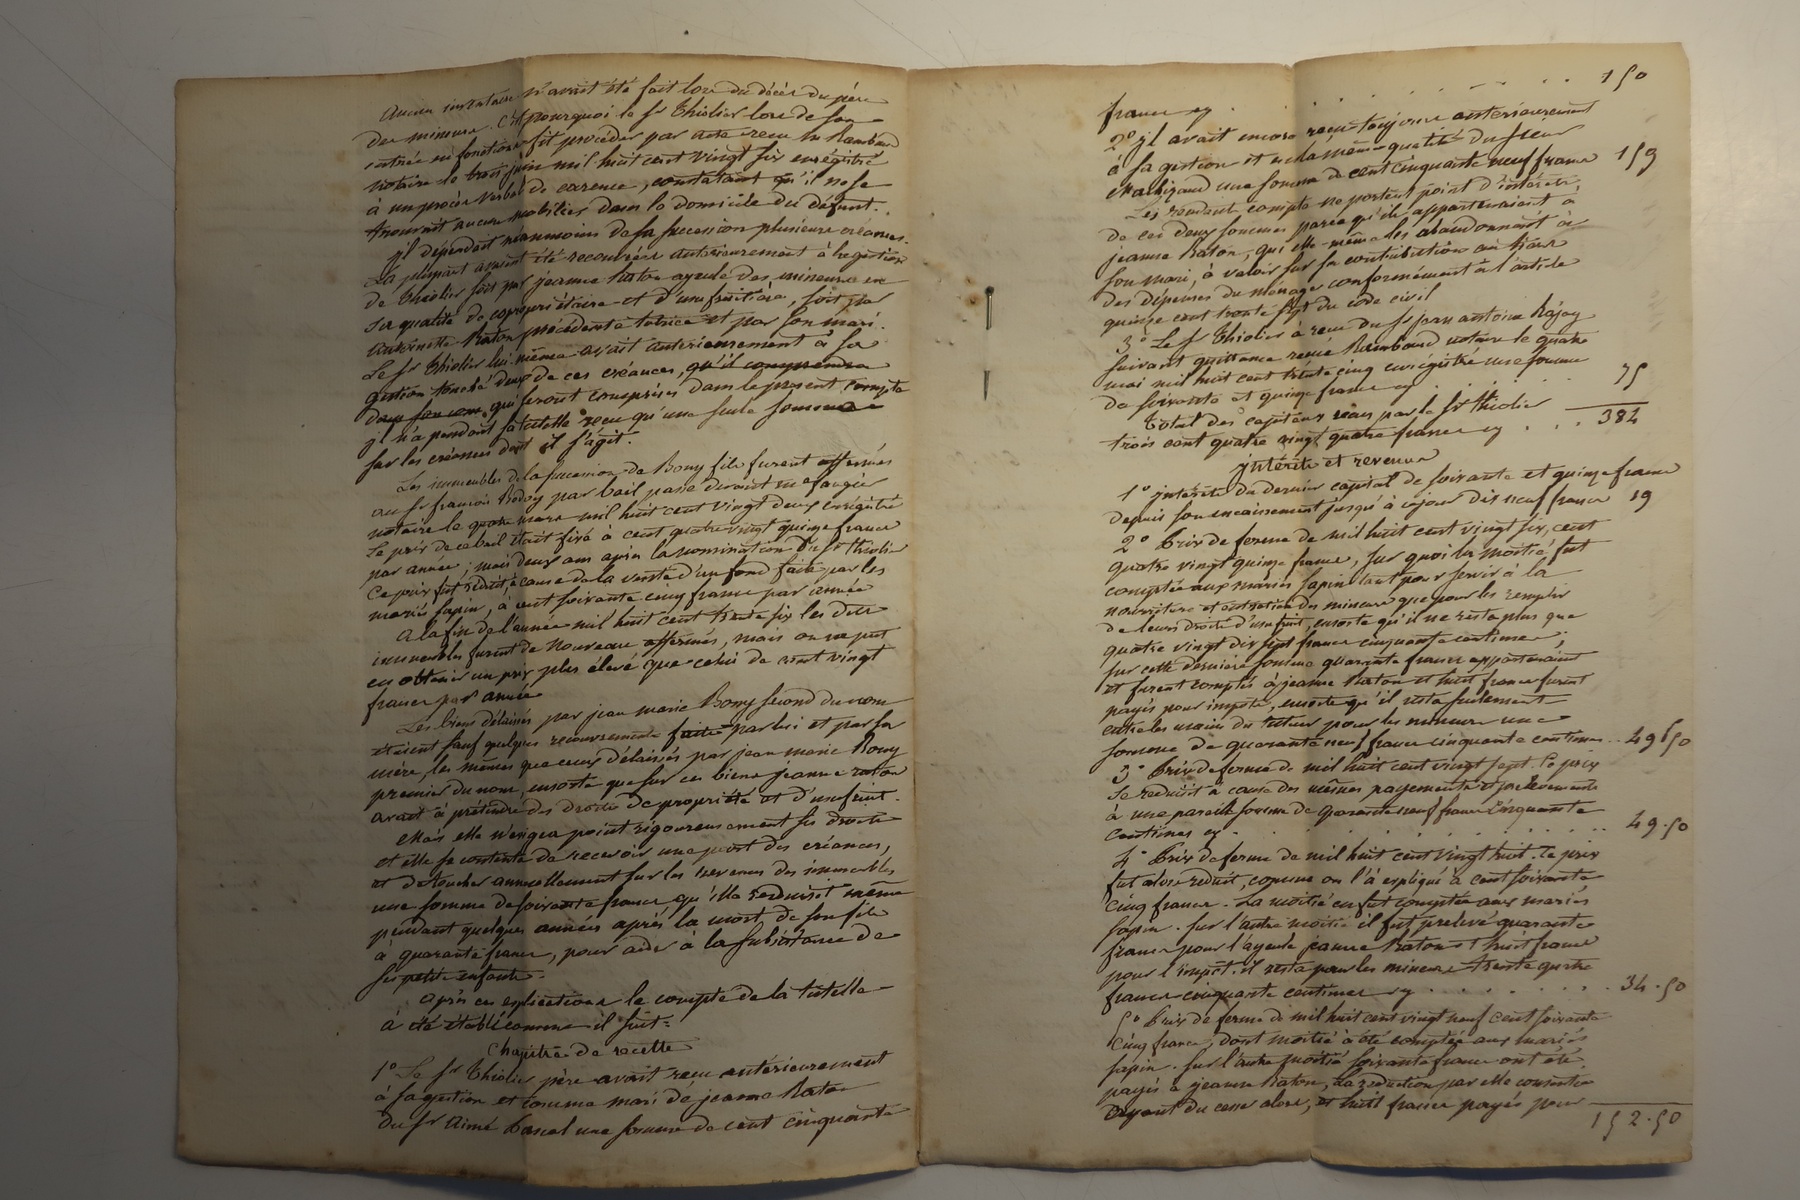 Aucun inventaire n'avait été fait lors du décès du père
des mineurs. C'est pourquoi le sr Thiolier lors de son
entrée en fonctions fit procéder par acte reçu Me Rambaud
notaire le trois juin mil huit cent vingt six enregistré
à un procès verbal de carence, constatant qu'il ne se
trouvait aucun mobilier dans le domicile du défunt.
Il dépendait néanmoins de sa succession plusieurs créances.
La plupart avaient été recouvrées antérieurement à la gestion
de Thiolier soit par jeanne Raton ayeule des mineurs en
sa qualité de copropriétaire et d'usufruitière, soit par
Antoinette Raton précédente tutrice et par son mari.
Le sr Thiolier lui même avait antérieurement à sa
gestion touché deux de ces créances, qu'il comprendra
dans son compte qui seront comprises dans le présent compte
il n'a pendant sa tutelle reçu qu'une seule somme
sur les créances dont il s'agit.
Les immeubles de la succession de Bony fils furent affermés
au sr françois par bail passé devant
notaire le quatre mars mil huit cent vingt deux enregistré
Le prix de ce bail était fixé à cent quatre vingt quinze francs
par année ; mais deux ans après la nomination du sr Thiolier
ce prix fut réduit, à cause de la vente d'un fond faite par les
mariés Sapin, à cent soixante cinq francs par année
A la fin de l'année mil huit cent trente six les dits
immeubles furent de nouveau affermés, mais on ne put
en obtenir un prix plus élevé que celui de cent vingt
francs par année
Les biens délaissés par jean marie Bony second du nom
étaient sauf quelques recouvrements faits par lui et par sa
mère, les mêmes que ceux délaissés par jean marie Bony
premier du nom, ensorte que sur ces biens jeanne raton
avait à prétendre des droits de propriété et d'usufruit.
Mais elle n'exigea point rigoureusement ses droits
et elle se contenta de recevoir une part des créances,
et de toucher annuellement sur les revenus des immeubles
une somme de soixante francs, qu'elle réduisit même
pendant quelques années après la mort de son fils
à quarante francs, pour aider à la subsistance de
ses petits enfants.
après ces explications le compte de la tutelle
a été établi comme il suit :
Chapitre de recette
1° Le sr Thiolier père avait reçu antérieurement
à sa gestion et comme mari de jeanne Raton
du sr Aimé Pascal une somme de cent cinquante
francs cy . . . . . . . . . 150
2° il avait encore reçu toujours antérieurement
à sa gestion et en la même qualité du sieur
une somme de cent cinquante neuf francs 159
Les rendants compte ne portent point d'intérêts
de ces deux sommes parce qu'ils appartenaient à
jeanne Raton, qui elle-même les abandonnait à
son mari, à valoir sur sa contribution au tiers
des dépenses du ménage conformément à l'article
quinze cent trente sept du code civil
3° Le sr Thiolier a reçu du sr jean antoine
suivant quittance reçue Rambaud notaire le quatre
mai mil huit cent trente cinq enrégistré une somme
de soixante et quinze francs cy . . . . . 75
Total des capitaux reçus par le sr Thiolier
trois cent quatre vingt quatre francs cy . . . . 384
Intérêts et revenus
1° intérêts du dernier capital de soixante et quinze francs
depuis son encaissement jusqu'à ce jour dix neuf francs 19
2° Prix de ferme de mil huit cent vingt six, cent
quatre vingt quinze francs, sur quoi la moitié fut
comptée aux mariés Sapin tant pour servir à la
nourriture et entretien des mineurs que pour les remplir
de leurs droits d'usufruit, ensorte qu'il ne resta plus que
quatre vingt dix sept francs cinquante centimes ;
sur cette dernière somme quarante francs appartenaient
et furent comptés à jeanne Raton et huit francs furent
payés pour impôts, ensorte qu'il resta seulement
entre les mains du tuteur pour les mineurs une
somme de quarante neuf francs cinquante centimes .. 49 f 50
3° Prix de ferme de mil huit cent vingt sept. Ce prix
se réduisit à cause des mêmes payements et prélèvements
à une pareille somme de quarante neuf francs cinquante
centimes cy . . . . . . . . . 49.50
4° Prix de ferme de mil huit cent vingt huit. Ce prix
fut alors réduit, comme on l'a expliqué à cent soixante
cinq francs. La moitié en fut comptée aux mariés
Sapin. Sur l'autre moitié il fut prélevé quarante
francs pour l'ayeule jeanne Raton et huit francs
pour l'impôt. il resta pour les mineurs trente quatre
francs cinquante centimes cy . . . . . . . . 34.50
5° Prix de ferme de mil huit cent vingt neuf cent soixante
cinq francs, dont moitié a été comptée aux mariés
Sapin. Sur l'autre moitié soixante francs ont été
payés à jeanne Raton, la réduction par elle consentie
ayant du cesser alors, et huit francs payés pour
152.50